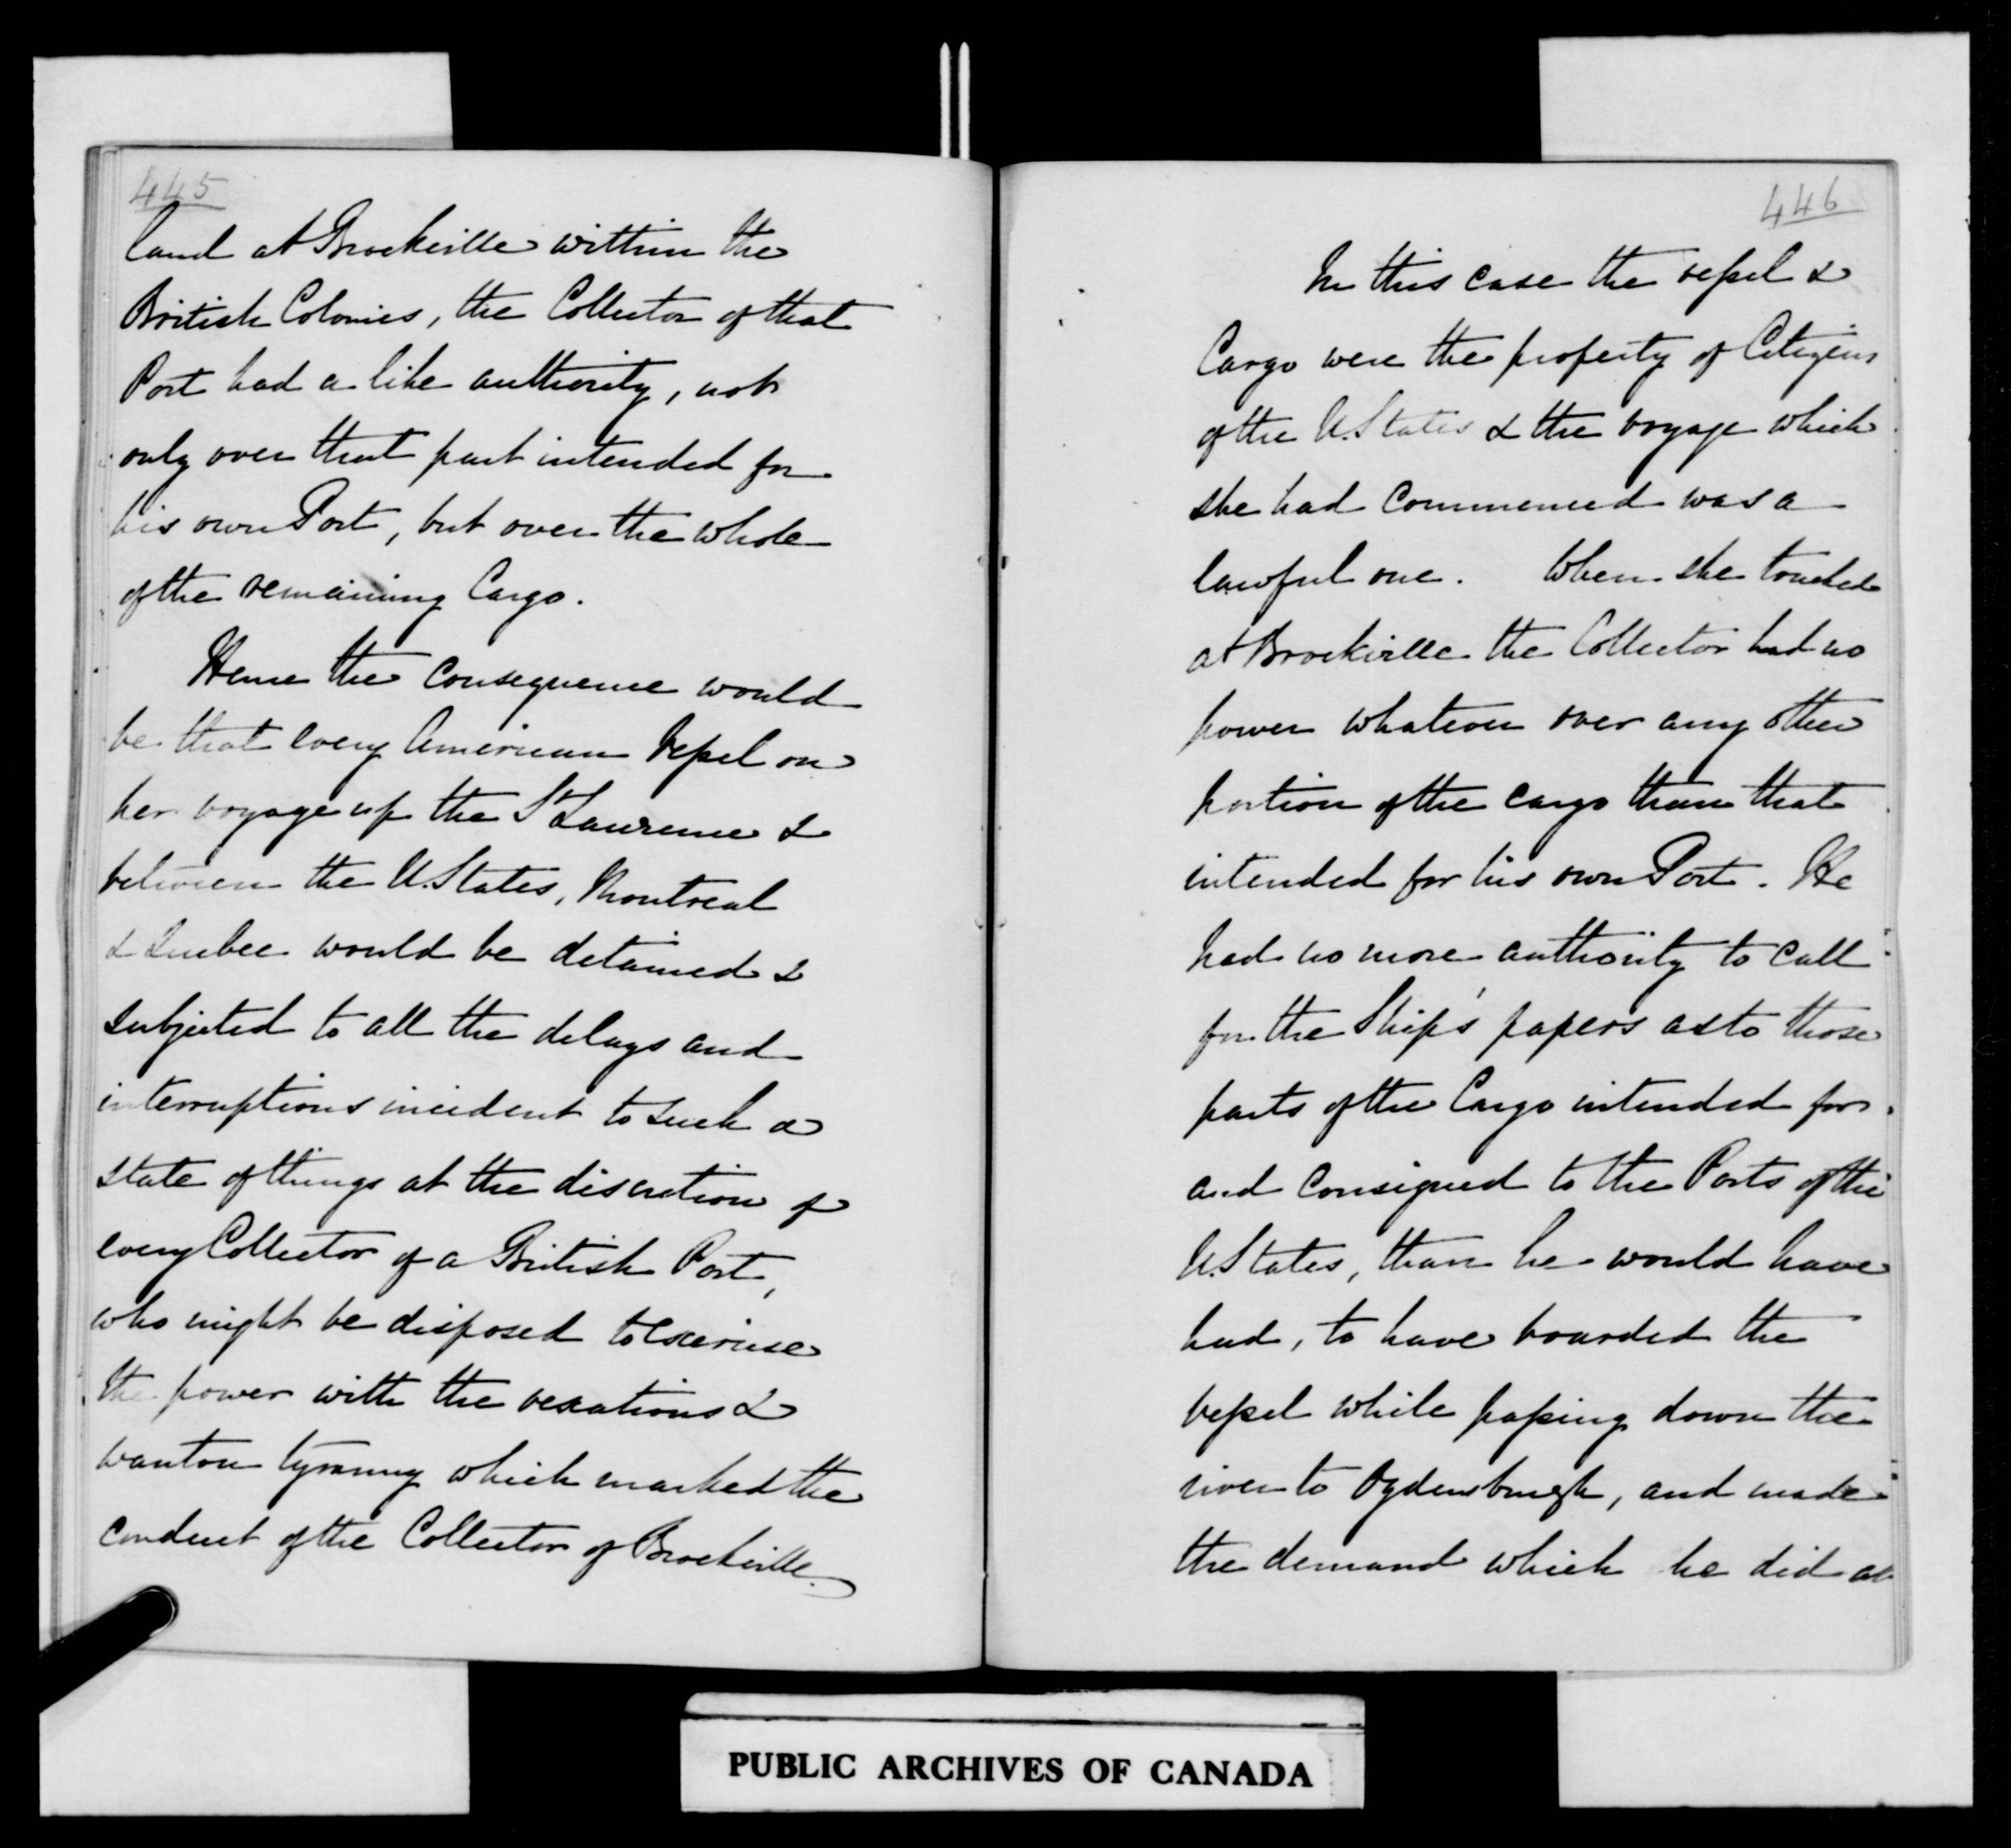 445
land at Brockville within the
British Colonies, the Collector of that
Port had a like authority, not
only over that part intended for
his own Port, but over the whole
of the remaining Cargo.
Hence the consequence would
be that every American Vessel on
her voyage up the St Lawrence &
between the U.States, Montreal
& Quebec would be detained &
subjected to all the delays and
interruptions incident to such a
state of things at the discretion of
every Collector of a British Port,
who might be disposed to exercise
the power with the vexatious &
wanton tyranny which marked the
conduct of the Collector of Brockville.
446
In this case the vessel &
Cargo were the property of Citizens
of the U.States & the voyage which
she had commenced was a
lawful one. When she touched
at Brockville the Collector had no
power whatever over any other
portion of the cargo than that
intended for his own Port. He
had no more authority to call
for the Ship's papers as to those
parts of the Cargo intended for
and consigned to the Ports of the
U.States, than he would have
had, to have boarded the
vessel while passing down the
river to Ogdensburgh, and made
the demand which he did at
PUBLIC ARCHIVES OF CANADA